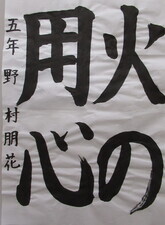 火の
用心
五年 野村朋花